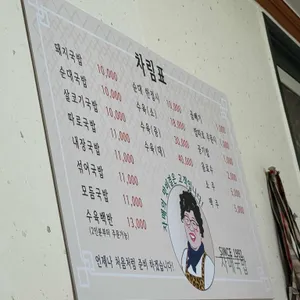 차림표
돼지국밥 10,000
순대국밥 10,000
살코기국밥 10,000
따로국밥 11,000
내장국밥 11,000
섞어국밥 11,000
모듬국밥 11,000
수육백반 13,000
(2인분부터 주문가능)
순대 한접시 10,000
수육(소)
수육(중) 30,000
수육(대) 40,000
공기밥
음료수
소주
맥주
언제나 처음처럼 준비 하겠습니다!
SINCE 1992